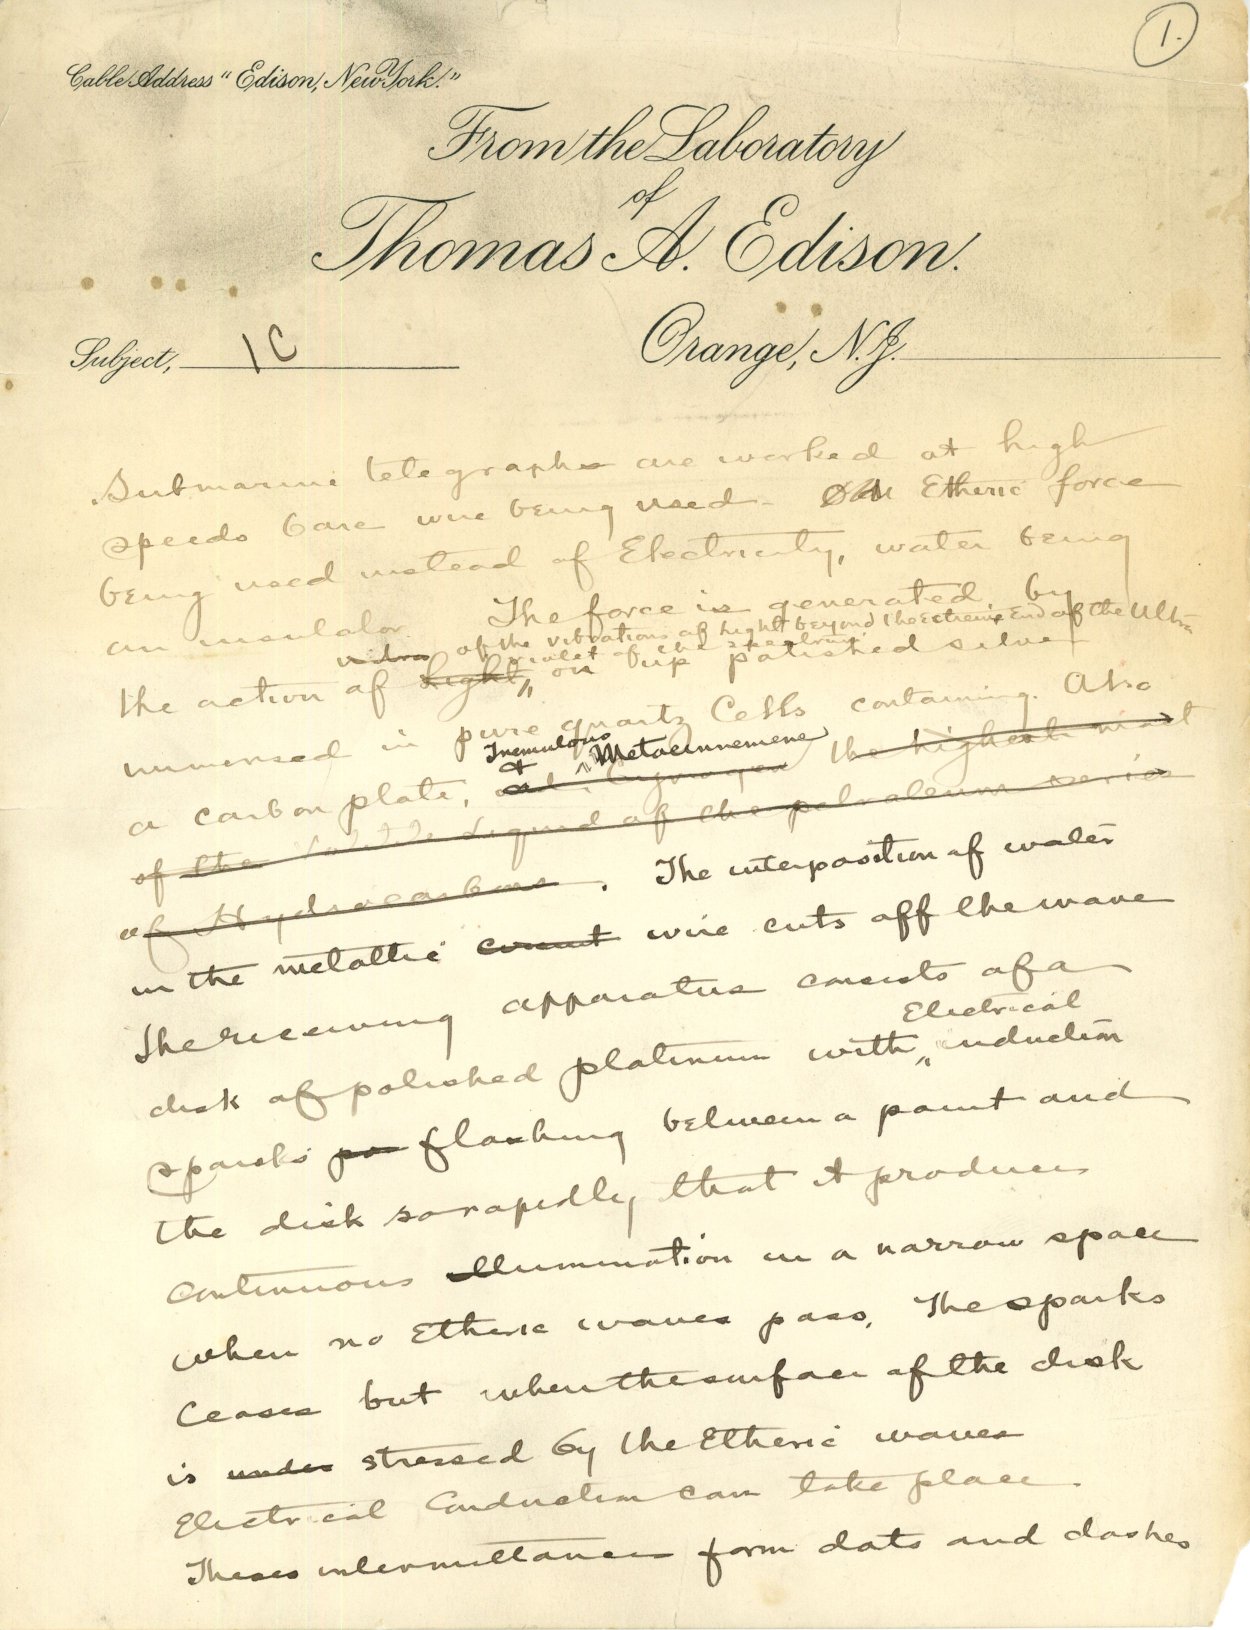 1.
Cable Address "Edison, New York."
From the Laboratory
of
Thomas A. Edison.
Orange, N.J.
Subject, 1C
Submarine telegraphs are worked at high
speeds bare wire being used - Etheric force
being used instead of Electricity, water being
an insulator. The force is generated by
of the vibrations of light beyond the extreme End of the Ultra
violet of the spectrum
the action of light, on polished silver
immersed in pure quartz Cells containing. Also
Tremulous Metacinnemene
a carbon plate, & the highest most
of the liquid of the petroleum series
of Hydrocarbons. The interposition of water
in the metallic wire cuts off the wave
The receiving apparatus consists of a
Electrical
disk of polished platinum with induction
sparks flashing between a point and
the disk so rapidly that it produces
continuous illumination in a narrow space
when no Etheric waves pass. The sparks
Ceases but when the surface of the disk
is under stressed by the Etheric waves
Electrical Conduction can take place.
Theses intermittances form dots and dashes